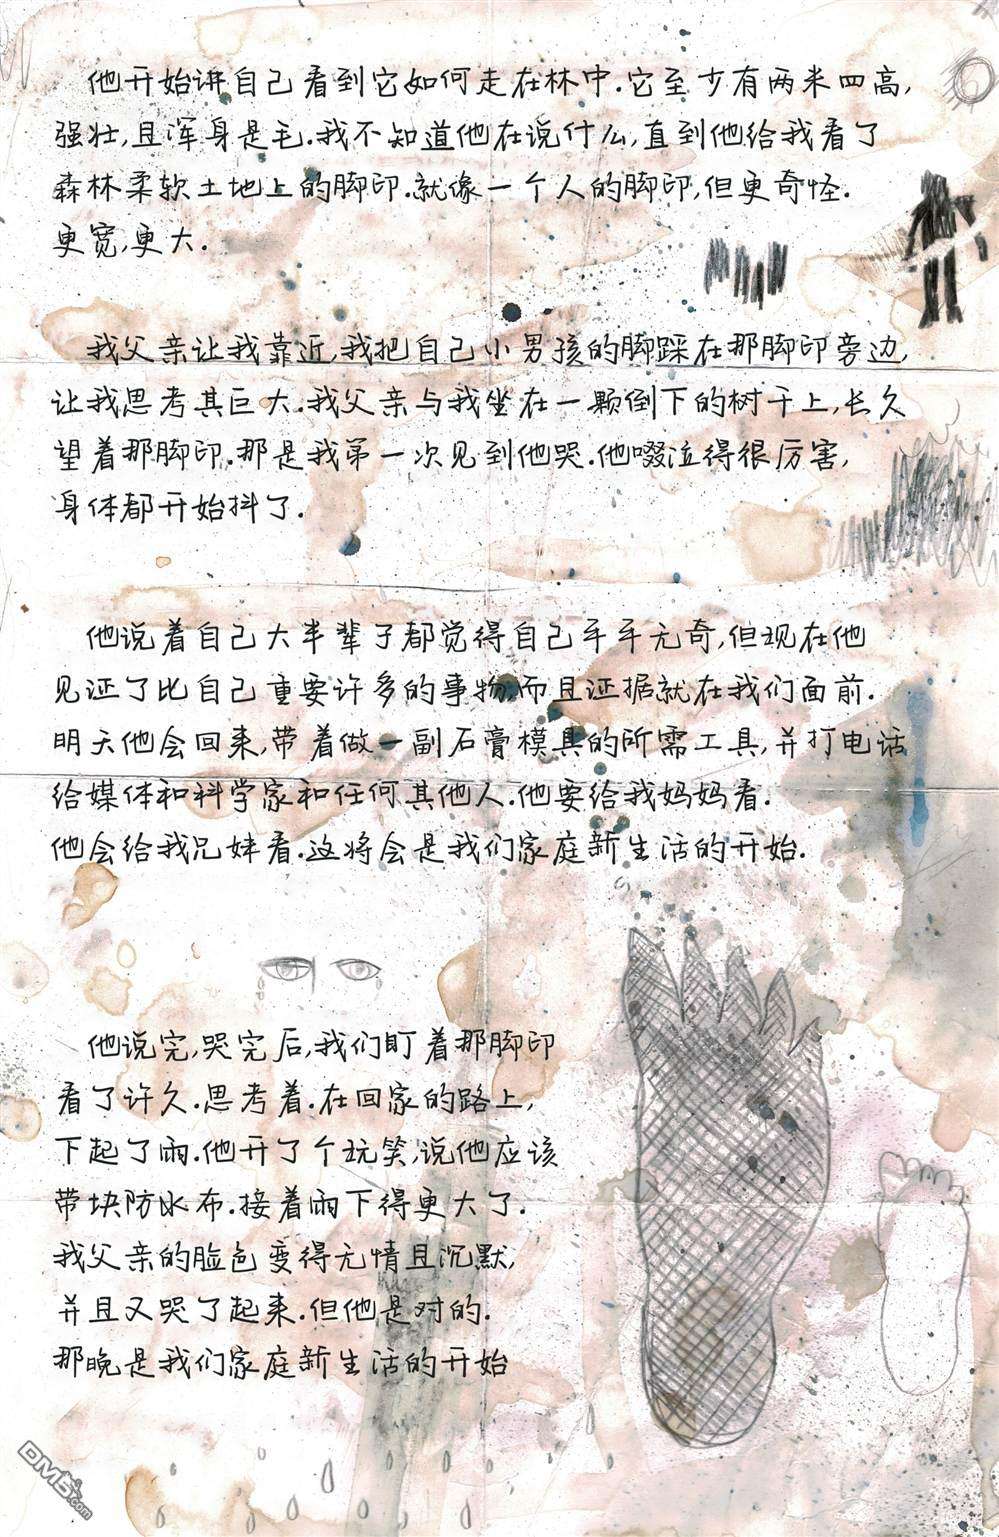 他开始讲自己看到它如何走在林中.它至少有两米四高,
强壮,且浑身是毛.我不知道他在说什么,直到他给我看了
森林柔软土地上的脚印.就像一个人的脚印,但更奇怪.
更宽,更大.
我父亲让我靠近,我把自己小男孩的脚踩在那脚印旁边,
让我思考其巨大.我父亲与我坐在一颗倒下的树干上,长久
望着那脚印.那是我第一次见到他哭.他啜泣得很厉害,
身体都开始抖了.
他说着自己大半辈子都觉得自己平平无奇,但现在他
见证了比自己重要许多的事物,而且证据就在我们面前.
明天他会回来,带着做一副石膏模具的所需工具,并打电话
给媒体和科学家和任何其他人.他要给我妈妈看.
他会给我兄妹看.这将会是我们家庭新生活的开始.
他说完,哭完后,我们盯着那脚印
看了许久.思考着.在回家的路上,
下起了雨.他开了个玩笑,说他应该
带块防水布.接着雨下得更大了.
我父亲的脸色变得无情且沉默,
并且又哭了起来.但他是对的.
那晚是我们家庭新生活的开始
DM5.com